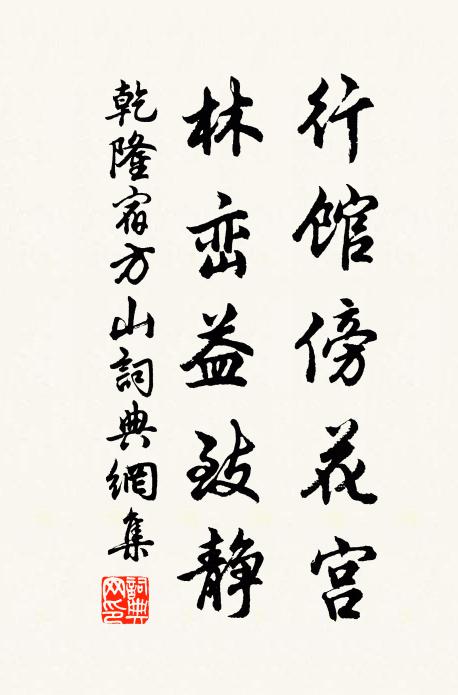 行馆傍花宫
林峦益致静
乾隆宿方山詞典網集
詞典网印